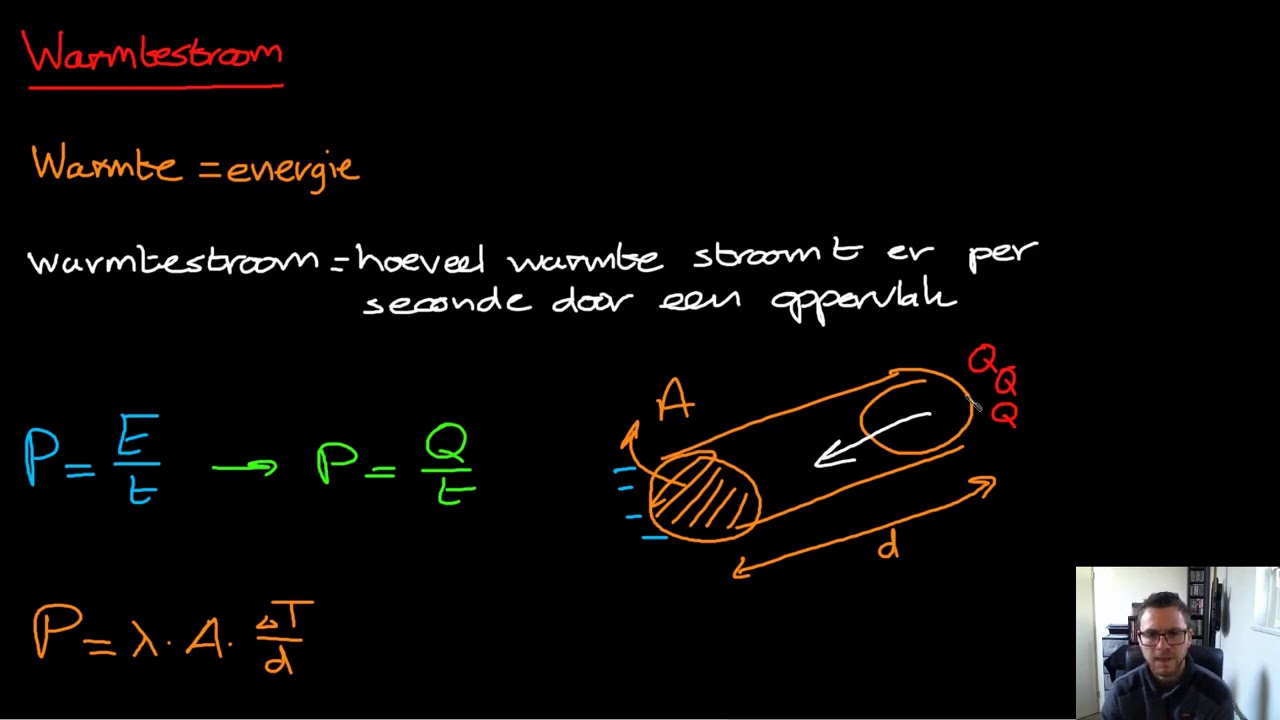 Warmtestroom
Warmte = energie
warmtestroom = hoeveel warmte stroomt er per
seconde door een oppervlak
P = E/t → P = Q/t
A
Q
Q
Q
d
P = λ · A · ΔT/d